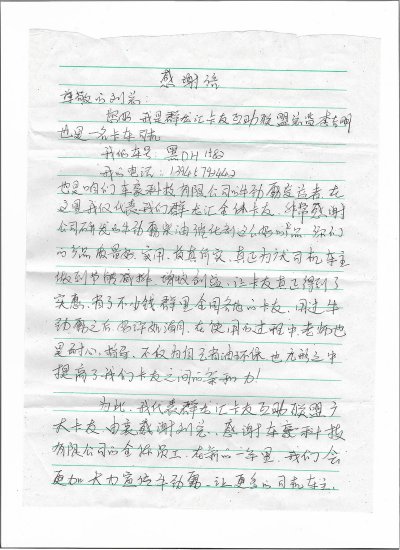 感谢信
尊敬的刘总：
您好 我是群龙汇卡友互助联盟
也是一名卡车司机
我的车号：黑DH1983
我的电话：
也是咱们车豪科技有限公司的牛动力 者，在
这里我仅代表我们群龙汇全体卡友 非常感谢
公司研发的牛动力柴油 这么好的产品 你们
的产品质量好，实用，货真价实，真正为大司机车主
做到节能高排，增收创益，让卡友真正得到了
实惠，省了不少钱 群里全国各地的卡友 用过牛
动力之后 好评如潮，在使用的过程中老师也
是耐心 指导，不仅为 省油环保 也无形之中
提高了我们卡友之间的亲和力！
为此，我代表群龙汇卡友互助联盟广
大卡友 由衷感谢刘总，感谢车豪科技
有限公司的全体员工，在新的一年里，我们会
更加大力宣传牛动力，让更多的司机车主，